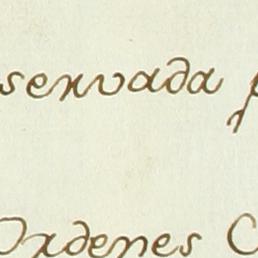 servada p
Ordenes C